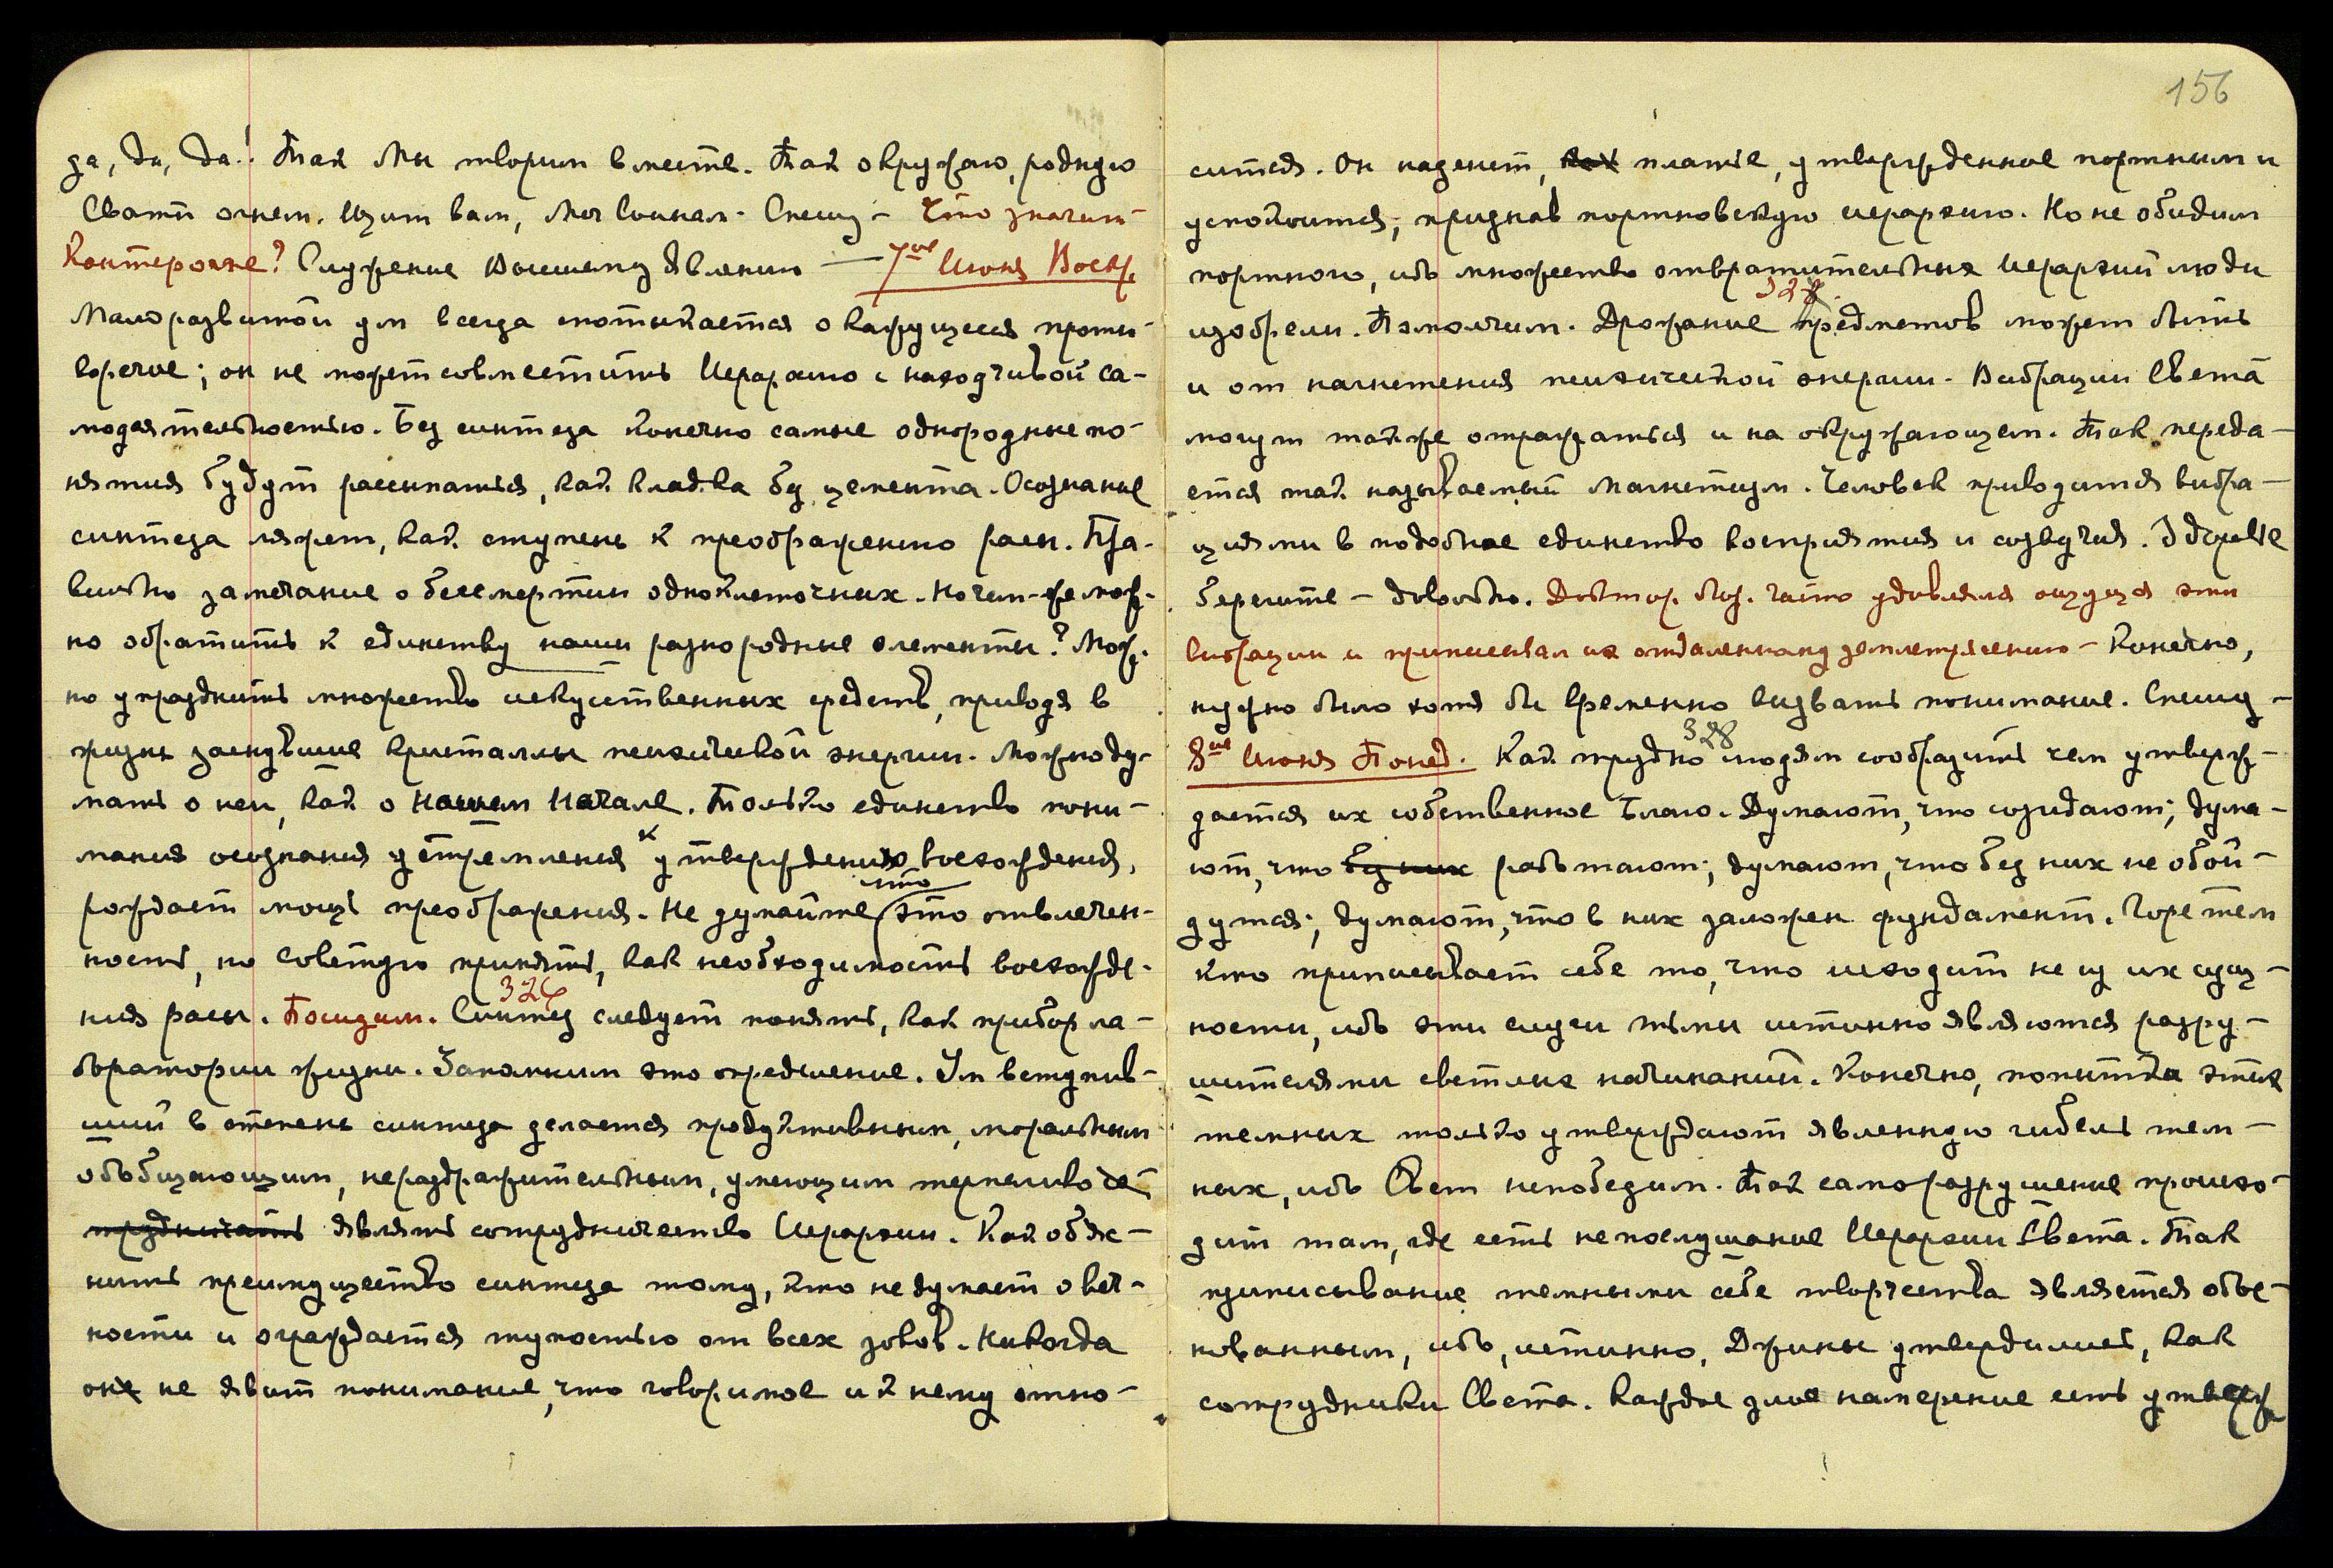 да, да, да! Так Мы творим вместе. Так окружаю, родную
Свати огнем. Щит вам, Мои Воинам. Спешу – Что значит
Контерокке? Служение Высшему Явлению — 7ое Июня Воскр.
Малоразвитой ум всегда спотыкается о кажущееся проти-
воречие; он не может совместить Иерархию с находчивой са-
модеятельностью. Без синтеза конечно самые однородные по-
нятия будут рассыпаться, как кладка без цемента. Осознание
синтеза ляжет, как ступень к преображению расы. Пра-
вильно замечание о бессмертии одноклеточных. Но чем-же мож-
но обратить к единству наши разнородные элементы? Мож-
но упразднить множество искусственных средств, приводя в
жизнь заснувшие кристаллы психической энергии. Можно ду-
мать о ней, как о Нашем Начале. Только единство пони-
мания осознания устремления к утверждению восхождения,
рождает мощь преображения. Не думайте что это отвлечен-
ность, но советую принять, как необходимость восхожде-
ния расы. Посидим. 326 Синтез следует понять, как прибор ла-
боратории жизни. Запомним это определение. Ум вступив-
ший в степень синтеза делается продуктивным, моральным
обобщающим, нераздражительным, умеющим терпеливо со-
трудничать являть сотрудничество Иерархии. Как объяс-
нить преимущество синтеза тому, кто не думает о веч-
ности и ограждается тупостью от всех зовов. Никогда
он не явит понимание, что говоримое и к нему отно-
156
сится. Он наденет, как платье, утвержденное портным и
успокоится, признав портновскую иерархию. Но не обидим
портного, ибо множество отвратительных Иерархий люди
изобрели. Помолчим. 327. Дрожание предметов может быть
и от нагнетения психической энергии. Вибрации Света
могут также отражаться и на окружающем. Так переда-
ется так называемый магнетизм. Человек приводится вибра-
циями в подобное единство восприятия и созвучия. Здоровье
берегите – довольно. Доктор. Лоз. часто удивлялся ощущая эти
вибрации и приписывал их отдаленному землетрясению – Конечно,
нужно было хотя бы временно вызвать понимание. Спешу –
8ое Июня Понед. 328 Как трудно людям сообразить чем утверж-
дается их собственное Благо. Думают, что созидают; дума-
ют, что без них работают; думают, что без них не обой-
дутся; думают, что в них заложен фундамент. Горе тем
кто приписывает себе то, что исходит не из их сущ-
ности, ибо эти слуги тьмы истинно являются разру-
шителями светлых начинаний. Конечно, попытка этих
темных только утверждают явленную гибель тем-
ных, ибо Свет непобедим. Так саморазрушение происхо-
дит там, где есть непослушание Иерархии Света. Так
приписывание темными себе творчества является обос-
нованным, ибо, истинно, Джины утвердились, как
сотрудники Света. Каждое злое намерение есть утверж